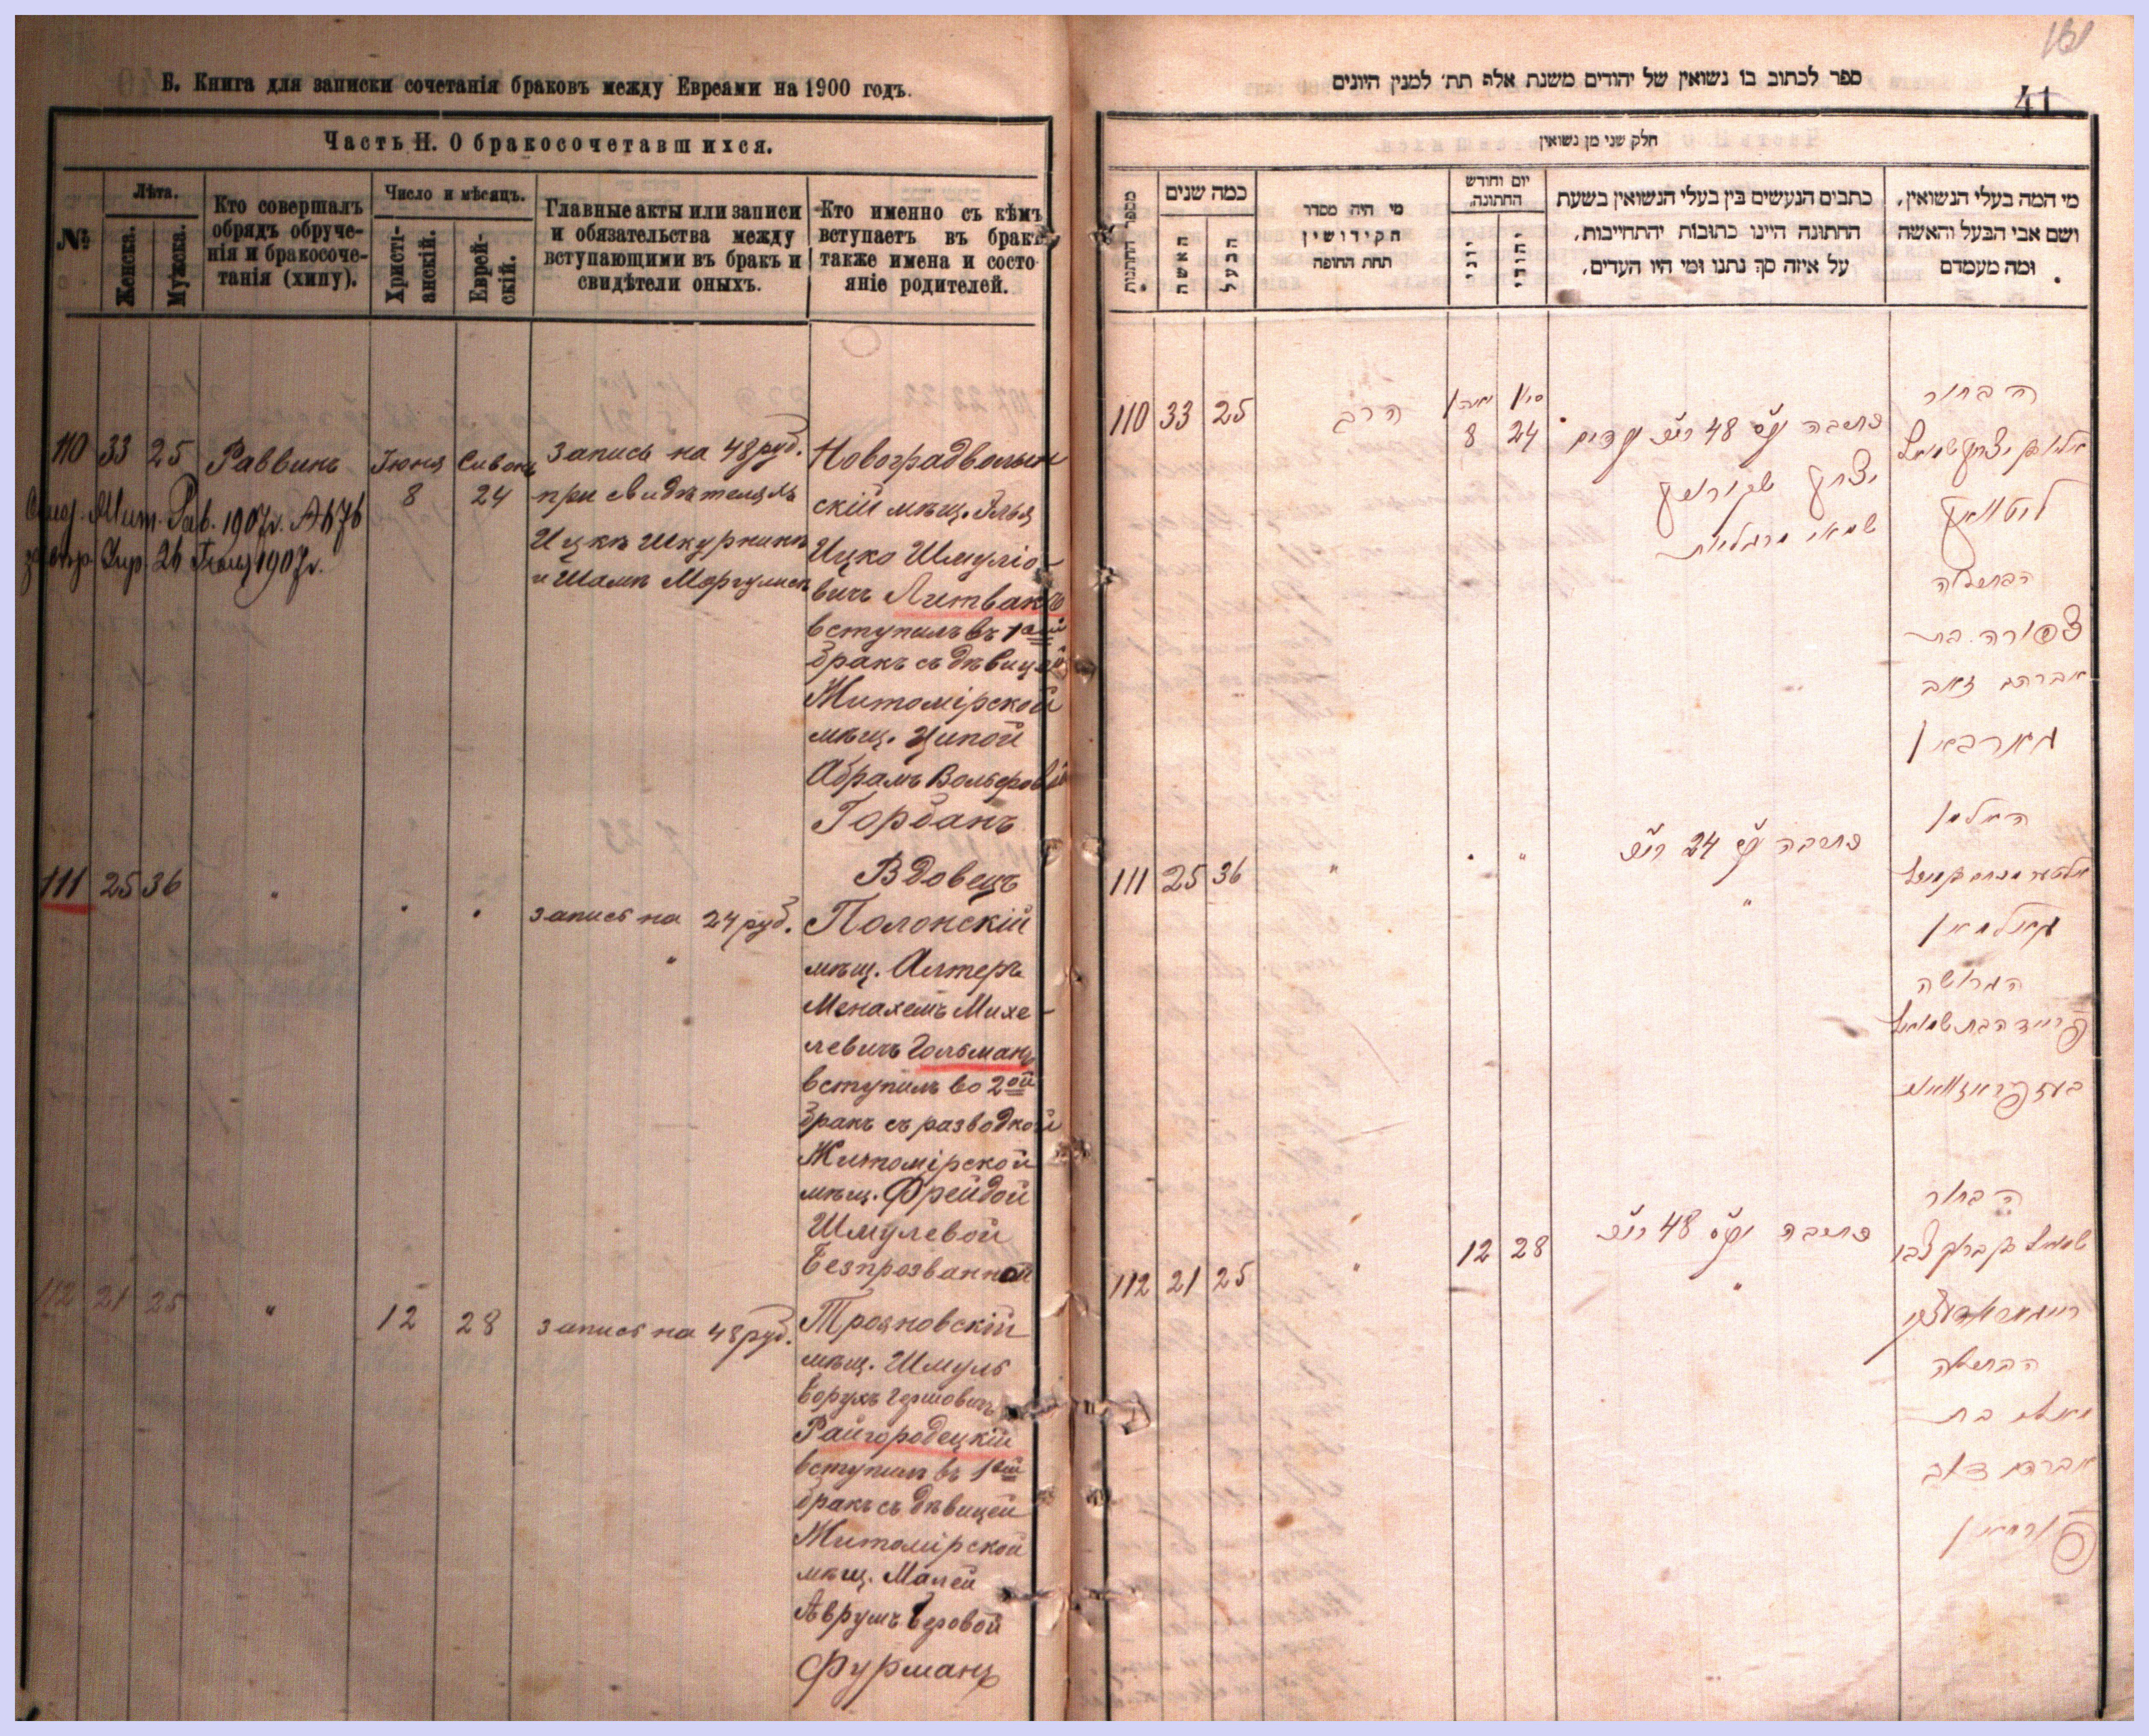 Б. Книга для записки сочетанія браковъ между Евреями на 1900 годъ.
Часть II. О бракосочетавшихся.
№
Лѣта.
Женска.
Мужска.
Кто совершалъ
обрядъ обруче-
нія и бракосоче-
танія (хипу).
Число и мѣсяцъ.
Христі-
анскій.
Еврей-
скій.
Главные акты или записи
и обязательства между
вступающими въ бракъ и
свидѣтели оныхъ.
Кто именно съ кѣмъ
вступаетъ въ бракъ
также имена и состо-
яніе родителей.
110 33 25 Раввинъ Іюня 8 24
Запись на 48 руб.
при свидѣтеляхъ
Ицкѣ Шкурникѣ
и Шамѣ Моргулисѣ
1907г. №76
26 1907г.
Новоградволын
скій мѣщ. Элья
Ицко Шмуліо-
вичъ Литвакъ
вступилъ въ 1ый
бракъ съ дѣвицей
Житомірской
мѣщ. Ципой
Абрамъ Вольфовой
Горбанъ
111 25 36 " " "
запись на 24 руб.
"
Вдовецъ
Полонскій
мѣщ. Алтеръ
Менахемъ Михе-
левичъ Гольманъ
вступилъ во 2ой
бракъ съ разводкой
Житомірской
мѣщ. Фрейдой
Шмулевой
Безпрозванной
112 21 25 " 12 28
запись на 48 руб.
Трояновскій
мѣщ. Шмуль
Борухъ Гершовичъ
Райгородецкій
вступилъ въ 1ый
бракъ съ дѣвицей
Житомірской
мѣщ. Малей
Аврумъ Беровой
Фурманъ
41
ספר לכתוב בו נשואין של יהודים משנת אלף תת׳ למנין היונים
חלק שני מן נשואין
מספר החתונות
כמה שנים
האשה
הבעל
מי היה מסדר
הקידושין
תחת החופה
יום וחודש
החתונה
יוני
יהודי
כתבים הנעשים בין בעלי הנשואין בשעת
החתונה היינו כתובות יהתחייבות,
על איזה סך נתנו ומי היו העדים,
מי המה בעלי הנשואין,
ושם אבי הבעל והאשה
ומה מעמדם
110 33 25 הרב 8 24
כתובה 48
יצחק
שמאי מרגליות
הבחור
ליטוואק
הבתולה
צפורה בת
אברהם זאב
גארבאן
111 25 36 " " "
כתובה 24
"
האלמן
גאלמאן
הגרושה
112 21 25 " 12 28
כתובה 48
"
הבחור
הבתולה
מאלי בת
אברהם דוב
פורמאן